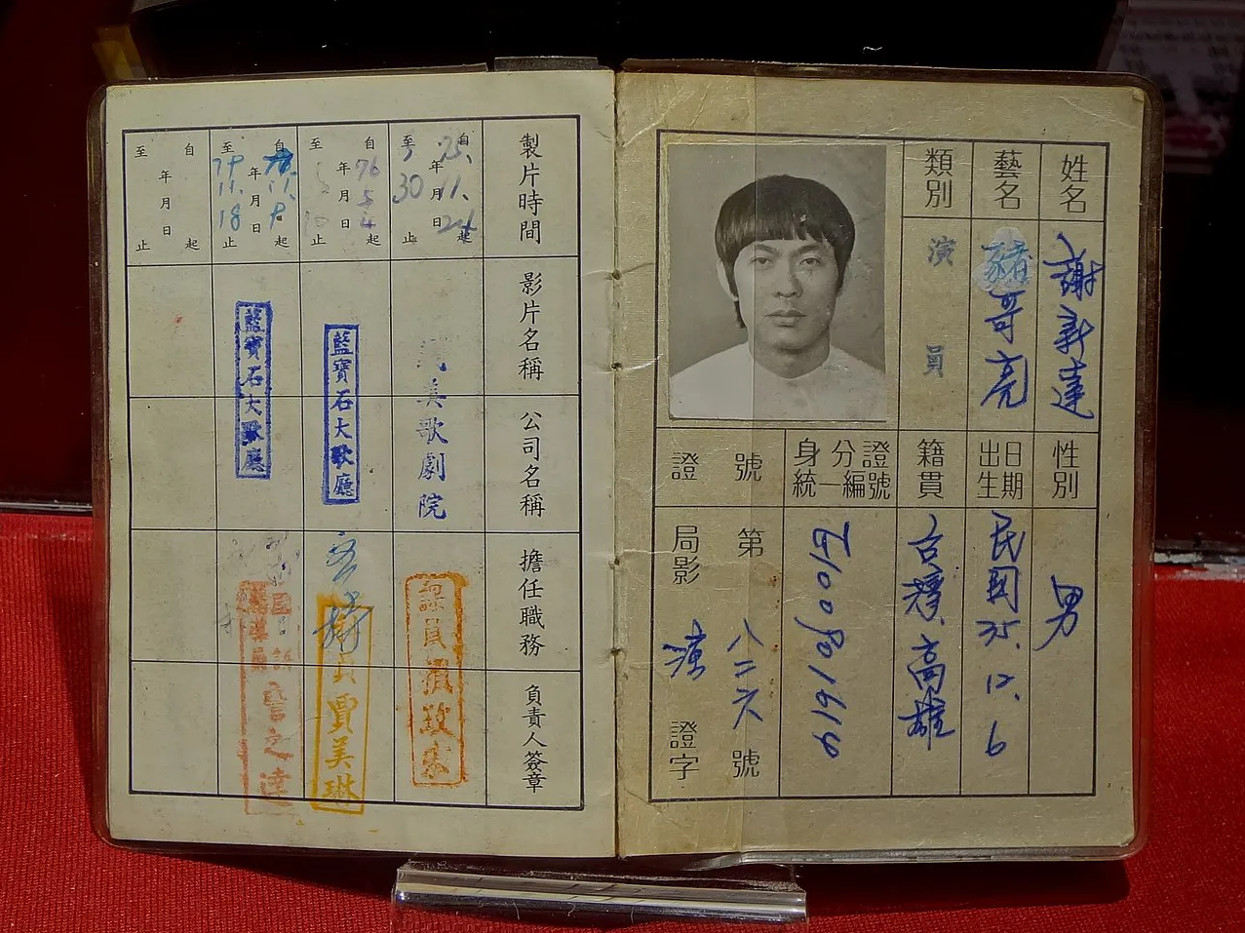 姓名
謝新達
性別
男
藝名
豬哥亮
出生日期
民國35.12.6
類別
演員
籍貫
台灣高雄
身分證統一編號
證號
局影演證字第八二六號
製片時間
影片名稱
公司名稱
擔任職務
負責人簽章
自75.年11.月24日起
至年月30日止
美歌劇院
自76年5月4日起
至年月日止
藍寶石大歌廳
賈美琳
自年11.月日起
至79年11.月18日止
藍寶石大歌廳
之達
自年月日起
至年月日止